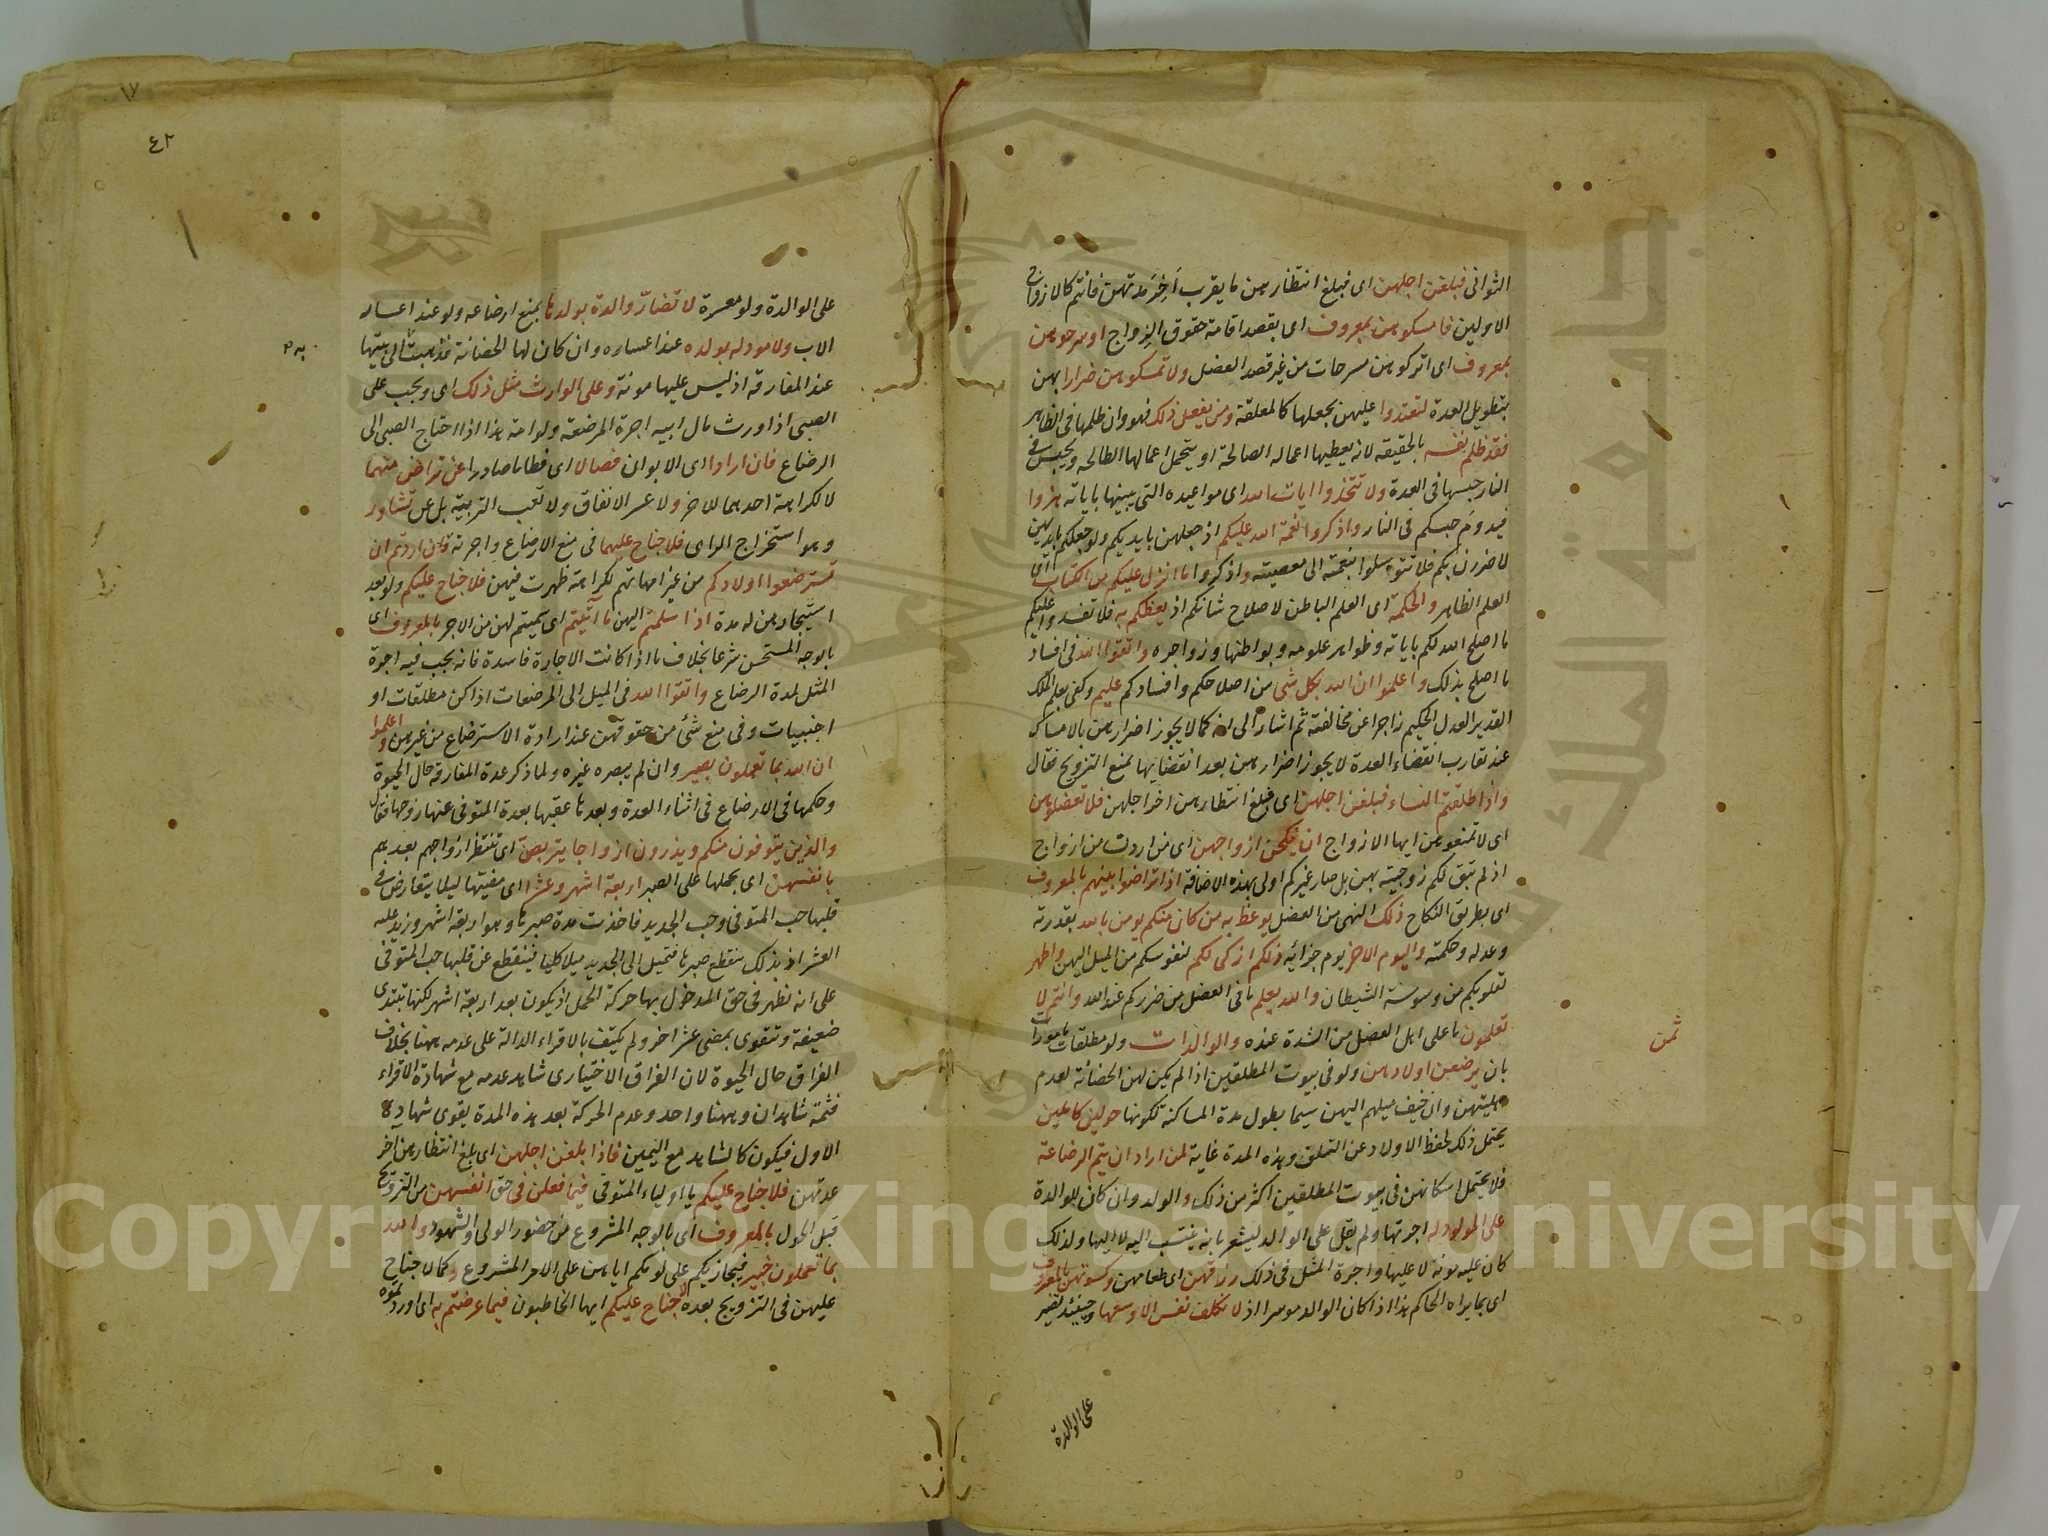 الثوانى فبلغن اجلهن اى فبلغ انتظارهن ما يقرب آخر مدتهن فانتم كالازواج
الاولين فامسكوهن بمعروف اى بقصد اقامة حقوق الزواج او سرحوهن
بمعروف اى اتركوهن مسرحات من غير قصد العضل ولا تمسكوهن ضرارا بهن
بتطويل العدة لتعتدوا عليهن بجعلها كالمعلقة ومن يفعل ذلك فهو وان ظلمها فى الظاهر
فقد ظلم نفسه بالحقيقه لانه يعطيها اعماله الصالحة او يتحمل اعمالها الطالحه ويحبس فى
النار حبسها فى العدة ولا تتخذوا ايات الله اى مواعيده التى بينها باياته هزوا
فيدوم حبسكم فى النار واذكروا نعمة الله عليكم اذ جعلهن بايديكم ولو جعلكم بايديهن
لاضررن بكم فلا تتوسلوا بنعمته الى معصيته واذكروا ما انزل عليكم من الكتاب اى
العلم الظاهر والحكمة اى العلم الباطن لاصلاح شانكم اذ يعظكم به فلا تفسدوا عليكم
ما اصلح الله لكم باياته وظواهر علومه وبواطنها وزواجره واتقوا الله فى افساد
ما اصلح بذلك واعلموا ان الله بكل شى من اصلاحكم وافسادكم عليم وكفى بعلم الملك
القدير العدل الحكيم زاجرا عن مخالفته ثم اشار الى انه كما لا يجوز اضرارهن بالامساك
عند تقارب انقضاء العدة لا يجوز اضرارهن بعد انقضايها بمنع التزويج فقال
واذا طلقتم النساء فبلغن اجلهن اى فبلغ انتظارهن اخر اجلهن فلا تعضلوهن
اى لا تمنعوهن ايها الازواج ان ينكحن ازواجهن اى من اردن من ازواج
اذ لم تبق لكم زوجيته بهن بل صار غيركم اولى بهذه الاضافة اذا تراضوا بينهم بالمعروف
اى بطريق النكاح ذلك النهى من العضل يوعظ به من كان منكم يومن بالله بقدرته
وعدله وحكمته واليوم الاخر يوم جزائه ذلكم ازكى لكم لنفوسكم من الميل اليهن واطهر
لقلوبكم من وسوسة الشيطان والله يعلم ما فى العضل من ضرركم عند الله وانتم لا
تعلمون ما على اهل العضل من الشدة عنده والوالدات ولو مطلقات مامورات
بان يرضعن اولادهن ولو فى بيوت المطلقين اذا لم يكن لهن الحضانة لعدم
اهليتهن وان خيف ميلهم اليهن سيما بطول مدة المساكنة لكونها حولين كاملين
يحتمل ذلك لحفظ الاولاد عن التلف وهذه المدة غاية لمن اراد ان يتم الرضاعة
فلا يحتمل اسكانهن فى بيوت المطلقين اكثر من ذلك والولد وان كان للوالدة
على المولود له اجرتها ولم يقل على الوالد ليشعر بانه ينتسب اليه لا اليها ولذلك
كان عليه مونه لا عليها واجرة المثل فى ذلك رزقهن اى طعامهن وكسوتهن بالمعروف
اى بما يراه الحاكم هذا اذا كان الوالد موسرا اذ لا تكلف نفس الا وسعها وحينئذ يصير
ثمن
على الوالدة
٤٢
١٧
على الوالدة ولو معسرة لا تضار والدة بولدها بمنع ارضاعه ولو عند اعسار
الاب ولا مولود له بولده عند اعساره وان كان لها الحضانة فذهبت الى بيتها
عند المفارقه اذ ليس عليها مونة وعلى الوارث مثل ذلك اى ويجب على
الصبى اذا ورث مال ابيه اجرة المرضعه ولوامه هذا اذا احتاج الصبى الى
الرضاع فان ارادا اى الابوان فصالا اى فطاما صادرا عن تراض منهما
لا لكراهة احدهما للاخر ولا عسر الانفاق ولا تعب التربية بل عن تشاور
وهو استخراج الراى فلا جناح عليهما فى منع الارضاع واجرته وان اردتم ان
تسترضعوا اولادكم من غير امهاتهم لكراهة ظهرت فيهن فلا جناح عليكم ولو بعد
استيجارهن له مدة اذا سلمتم اليهن ما آتيتم اى سميتم لهن من الاجر بالمعروف اى
بالوجه المستحسن شرعا بخلاف ما اذا كانت الاجارة فاسدة فانه يجب فيه اجرة
المثل لمدة الرضاع واتقوا الله فى الميل الى المرضعات اذا كن مطلقات او
اجنبيات وفى منع شئ من حقوقهن عند ارادة الاسترضاع من غيرهن واعلموا
ان الله بما تعملون بصير وان لم يبصره غيره ولما ذكر عدة المفارقه حال الحيوة
وحكمها فى الارضاع فى اثناء العدة وبعدها عقبها بعدة المتوفى عنها زوجها فقال
والذين يتوفون منكم ويذرون ازواجا يتربصن اى تنتظر ازواجهم بعدهم
بانفسهن اى بحملها على الصبر اربعة اشهر وعشرا اى مغيتها ليلا يتعارض فى
قلبها حب المتوفى وحب الجديد فاخذت مدة صبرها وهو اربعة اشهر وزيد عليه
العشر اذ بذلك ينقطع صبرها فتميل الى الجديد ميلا كليا فينقطع عن قلبها حب المتوفى
على انه تظهر فى حق المدخول بها حركة الحمل اذ يكون بعد اربعة اشهر لكنها تبتدى
ضعيفة وتتقوى بمضى عشر اخر ولم يكتف بالاقراء الدالة على عدمه ههنا بخلاف
الفراق حال الحيوة لان الفراق الاختيارى شاهد عدمه مع شهادة الاقراء
فثمة شاهدان وههنا واحد وعدم الحركة بعد هذه المدة يقوى شهادة
الاول فيكون كالشاهد مع اليمين فاذا بلغن اجلهن اى بلغ انتظارهن اخر
عدتهن فلا جناح عليكم يا اولياء المتوفى فيما فعلن فى حق انفسهن من التزويج
قبل الحول بالمعروف اى بالوجه المشروع من حضور الولى والشهود والله
بما تعملون خبير فيجازيكم على لومكم اياهن على الامر المشروع وكما لا جناح
عليهن فى التزويج بعده لا جناح عليكم ايها الخاطبون فيما عرضتم به اى اوردتموه
Copyright © King Saud University